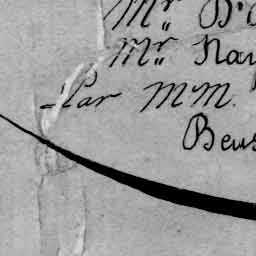 Mr. D'
Mr. Nau
Par MM.
Beus